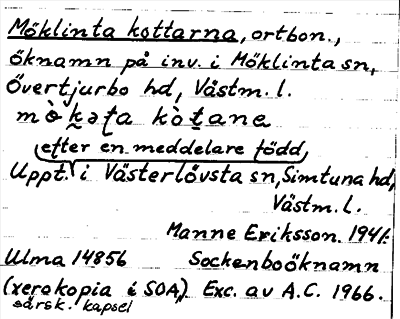 Möklinta kottarna, ortbon.,
öknamn på inv. i Möklinta sn,
Övertjurbo hd, Västm. l.
mò̀ḵəʈa kòṯanɐ
efter en meddelare född
Uppt. i Västerlövsta sn, Simtuna hd,
Västm. l.
Manne Eriksson. 1941.
Ulma 14856 Sockenboöknamn
(xerokopia i SOA), Exc. av A.C. 1966.
särsk. kapsel